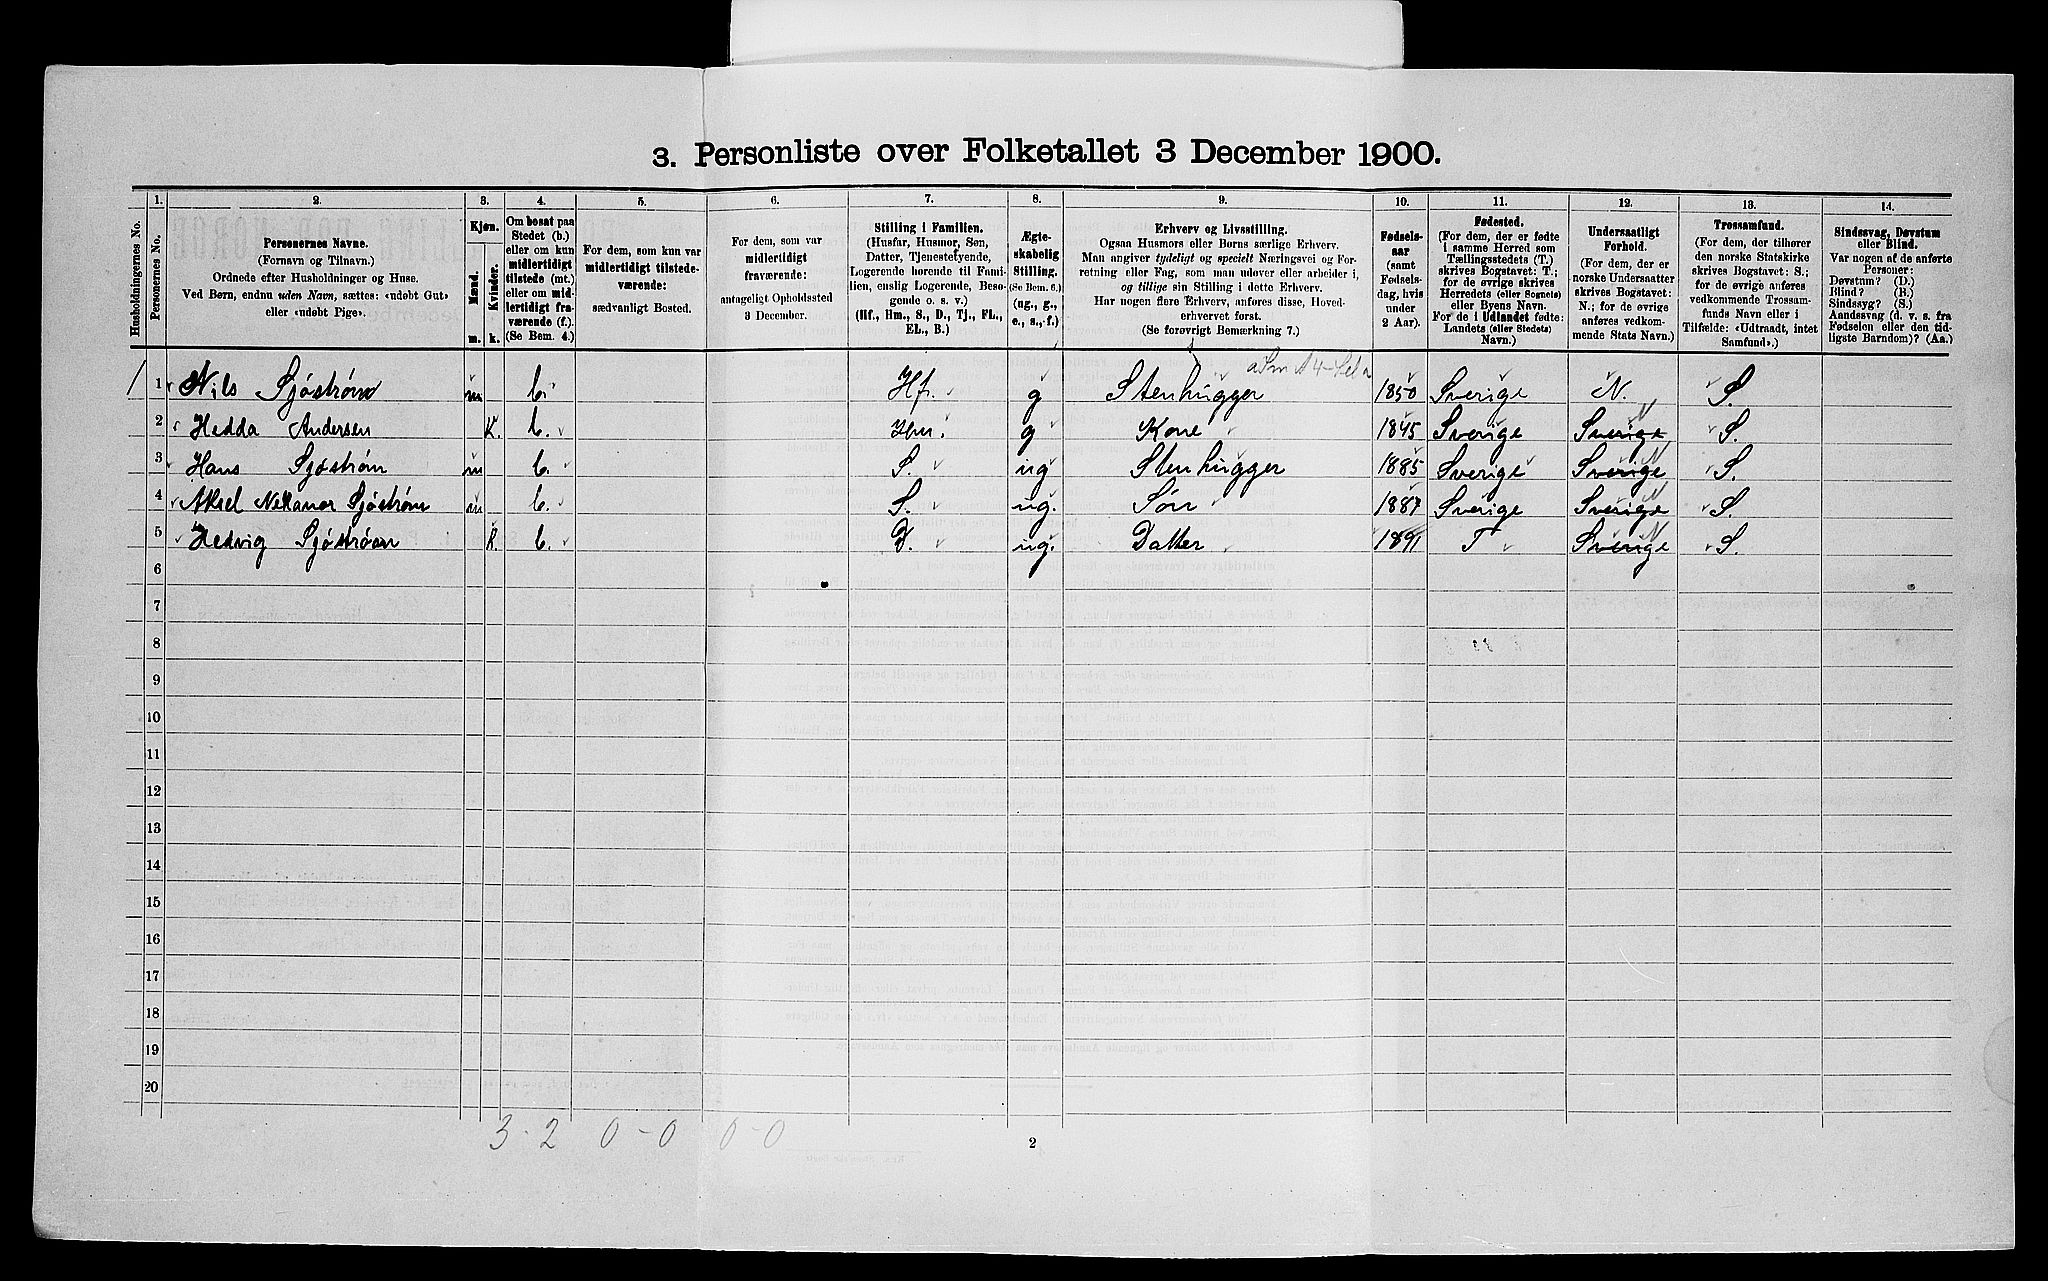 3. Personliste over Folketallet 3 December 1900.
1. 2. 3. 4. 5. 6. 7. 8. 9. 10. 11. 12. 13. 14.
Husholdningernes No.
Personernes No.
Personernes Navne.
(Fornavn og Tilnavn.)
Ordnede efter Husholdninger og Huse.
Ved Børn, endnu uden Navn, sættes: «udøbt Gut»
eller «udøbt Pige».
Kjøn.
Mænd.
Kvinder.
m. k.
Om bosat paa
Stedet (b.)
eller om kun
midlertidigt
tilstede (mt.)
eller om mid-
lertidigt fra-
værende (f.)
(Se Bem. 4.)
For dem, som kun var
midlertidigt tilstede-
værende:
sædvanligt Bosted.
For dem, som var
midlertidigt
fraværende:
antageligt Opholdssted
3 December.
Stilling i Familien.
(Husfar, Husmor, Søn,
Datter, Tjenestetyende,
Logerende hørende til Fami-
lien, enslig Logerende, Besø-
gende o. s. v.)
(Hf., Hm., S., D., Tj., FL.,
EL., B.)
Ægte-
skabelig
Stilling.
(Se Bem. 6.)
(ug., g.,
e., s., f.)
Erhverv og Livsstilling.
Ogsaa Husmors eller Børns særlige Erhverv.
Man angiver tydeligt og specielt Næringsvei og For-
retning eller Fag, som man udøver eller arbeider i,
og tillige sin Stilling i dette Erhverv.
Har nogen flere Erhverv, anføres disse, Hoved-
erhvervet først.
(Se forøvrigt Bemærkning 7.)
Fødsels-
aar
(samt
Fødsels-
dag, hvis
under
2 Aar).
Fødested.
(For dem, der er fødte
i samme Herred som
Tællingsstedets (T.)
skrives Bogstavet: T.;
for de øvrige skrives
Herredets (eller Sognets)
eller Byens Navn.
For de i Udlandet fødte:
Landets (eller Stedets)
Navn.)
Undersaatligt
Forhold.
(For dem, der er
norske Undersaatter
skrives Bogstavet:
N.; for de øvrige
anføres vedkom-
mende Stats Navn.)
Trossamfund.
(For dem, der tilhører
den norske Statskirke
skrives Bogstavet: S.;
for de øvrige anføres
vedkommende Trossam-
funds Navn eller i
Tilfælde: «Udtraadt, intet
Samfund».)
Sindssvag, Døvstum
eller Blind.
Var nogen af de anførte
Personer:
Døvstum? (D.)
Blind? (B.)
Sindssyg? (S.)
Aandssvag (d. v. s. fra
Fødselen eller den tid-
ligste Barndom)? (Aa.)
1 1 Nils Sjøstrøm m b. Hf. g Stenhugger 1850 Sverige N. S.
2 Hedda Andersen K. b. Hm. g Kone 1845 Sverige Sverige N S.
3 Hans Sjøstrøm m b. S. ug Stenhugger 1885 Sverige Sverige N S.
4 Aksel Nekanor Sjøstrøm m b. S. ug. Søn 1887 Sverige Sverige N S.
5 Hedvig Sjøstrøm K. b. D. ug. Datter 1891 T Sverige N S.
6
7
8
9
10
11
12
13
14
15
16
17
18
19
20
3 - 2 0 - 0 0 - 0
2